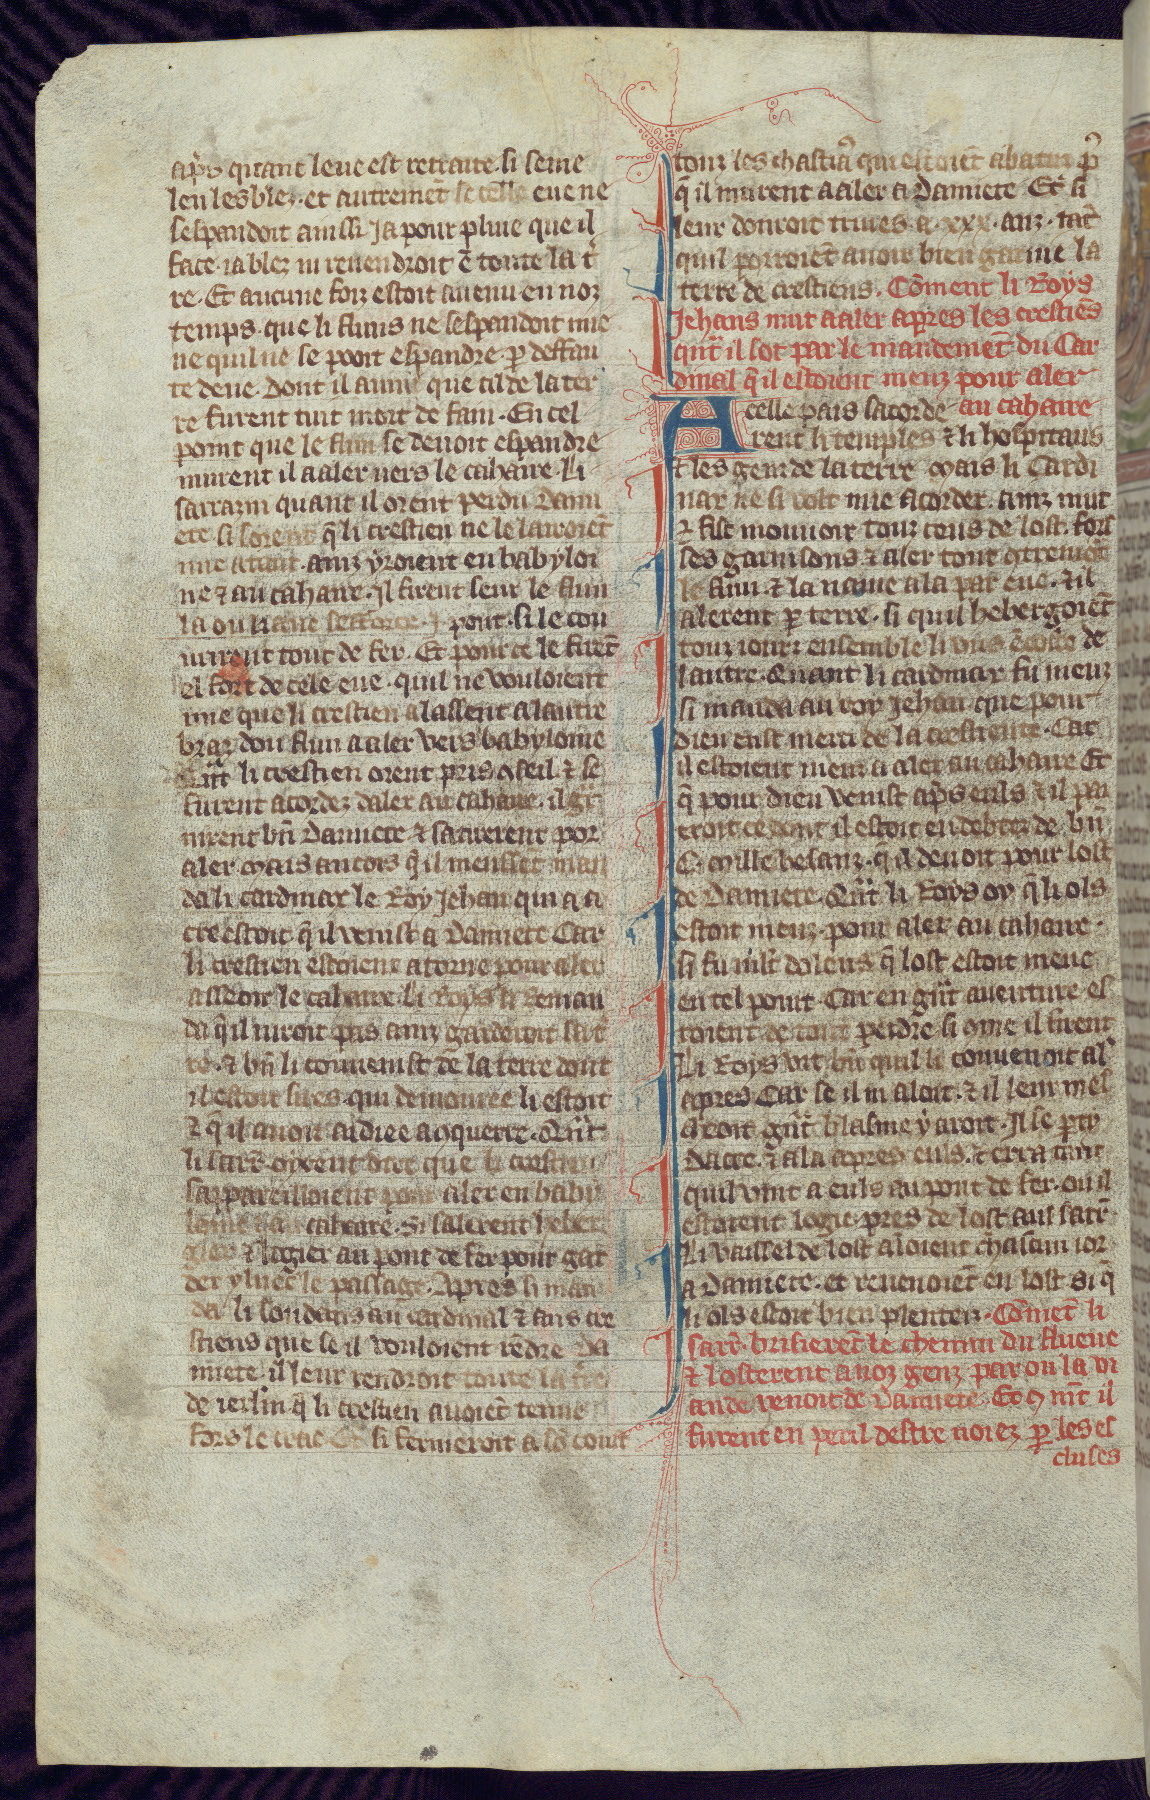 apres quant leue est retraite. si seme
len les blez. et autremẽt se celle eue ne
sespandoit ainssi. Ja pour pluie que il
face. ia blez ni reuendroit ẽ toute la t̾
re. Et aucune foiz estoit auenu en noz
temps. que li fluns ne sespandoit mie
ne quil ne se pooit espandre. ꝑ deffau
te deue. dont il auint que cil de la ter
re furent tuit mort de fain. En cel
point que le flun se deuoit espandre
murent il a aler uers le cahaire. Li
sarrazin quant il orent perdu Dami
ete. si sorent q̃ li crestien ne le lairoiẽt
mie atant. ainz yroient en babyloi
ne ⁊ au cahaire. Il firent seur le flun
la ou li eaue sefforce .j. pont. si le cou
urirent tout de fer. Et pour ce le firẽt
el fort de cele eue. quil ne vouloient
mie que li crestien alassent a lautre
braz dou flun a aler vers babyloine
Qñt li crestien orent pris ꝯseil. ⁊ se
furent acordez daler au cahaire. il gͣr
nirent bñ Damiete ⁊ satirerent por
aler. Mais ancois q̃ il meussent man
da li cardinax le Roy Jehan qui a a
cre estoit. q̃ il venist a Damiete. Car
li crestien estoient atorne pour aler
asseoir le cahaire. Li Roys li reman
da q̃ il niroit pas. ainz garderoit sa t̾
re. ⁊ bñ li couuenist de la terre dont
il estoit sires. qui demouree li estoit
⁊ q̃ il auoit aidiee a ꝯquerre. Qñt
li sarr̃. oyrent dire que li crestien
sappareilloient pour aler en baby
loine ⁊ au cahaire. Si salerent heber
gier ⁊ logier au pont de fer pour gar
der yluec le passage. Apres li man
da li soudans au cardinal ⁊ aus cre
stiens que se il vouloient rẽdre Da
miete. il leur rendroit toute la t̾re
de ierlm̃. q̃ li crestien auoiẽt tenue
fors le crac. Et si fermeroit a so᷒ cout
touz les chastiax̾ qui estoiẽt abatuz ꝑ
q̃ il murent a aler a Damiete. Et si
leur donroit triues a .xxx. anz. tãt
quil porroiẽt auoir bien garnie la
terre de crestiens. Cõment li Roys
Jehans mut a aler apres les crestiẽs
qñt il sot par le mandemẽt du Car
dinal q̃ il estoient meuz pour aler
au cahaire
A celle pais sacorde
rent li temples ⁊ li hospitaus
⁊ les genz de la terre. Mais li Cardi
nax ne si volt mie acorder. ainz mut
⁊ fist mouuoir touz ceus de lost. fors
les garnisons ⁊ aler tout ꝯtremõt
le flun. ⁊ la nauie ala par eue. ⁊ il
alerent ꝑ terre. si quil hebergoiẽt
touz iourz ensemble li uns ẽcoste de
lautre. Quant li cardinax fu meuz
si manda au roy Jehan. que pour
dieu eust merci de la crestiente. Car
il estoient meu a aler au cahaire. Et
q̃ pour dieu venist aps̃ euls. ⁊ il pai
eroit ce dont il estoit endebtez. de bñ
C. mille besanz. q̃ il deuoit pour lost
de Damiete. Qñt li Roys oy q̃ li ols
estoit meuz. pour aler au cahaire.
si fu ml̃t dolens q̃ lost estoit meue
en tel point. Car en gͣnt auenture es
toient de tout perdre si ꝯme il firent
Li Roys vit bñ quil li couuenoit al̾
apres. Car se il ni aloit. ⁊ il leur mes
cheoit. gͣnt blasme y aroit. Il se pty
dacre. ⁊ ala apres euls. ⁊ erra tant
quil vint a euls au pont de fer. ou il
estoient logie. pres de lost aus sarr̃.
Li vaissel de lost aloient chascun ior
a Damiete. et reuenoiẽt en lost. si q̃
li ols estoit bien plenteis. Cõmẽt li
sarr̃. brisierẽt le chemin du flueue
⁊ losterent a noz genz. par ou la vi
ande venoit de Damiete. Et ꝯ mẽt il
furent en peril destre noiez ꝑ les es
cluses